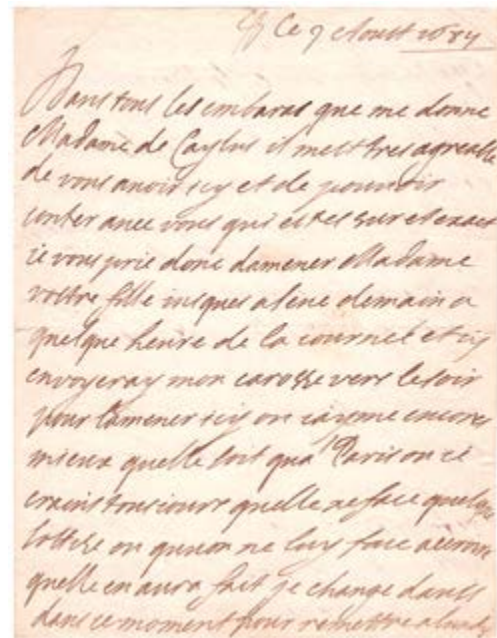 Ce 9 Aoust 1687
Dans tous les embaras que me donne
Madame de Caylus il mest tres agreable
de vous avoir icy et de pouvoir
conter avec vous qui estes sur et exact
ie vous prie donc damener Madame
vostre fille iusques a demain a
quelque heure de la iournee et iy
envoyeray mon carosse vers le soir
pour lamener icy ou iayme encore
mieux quelle soit qua Paris ou ie
crains tousiours quelle ne face quelque
sottise ou quon ne luy face accroire
quelle en aura fait je change
dans ce moment pour remettre a